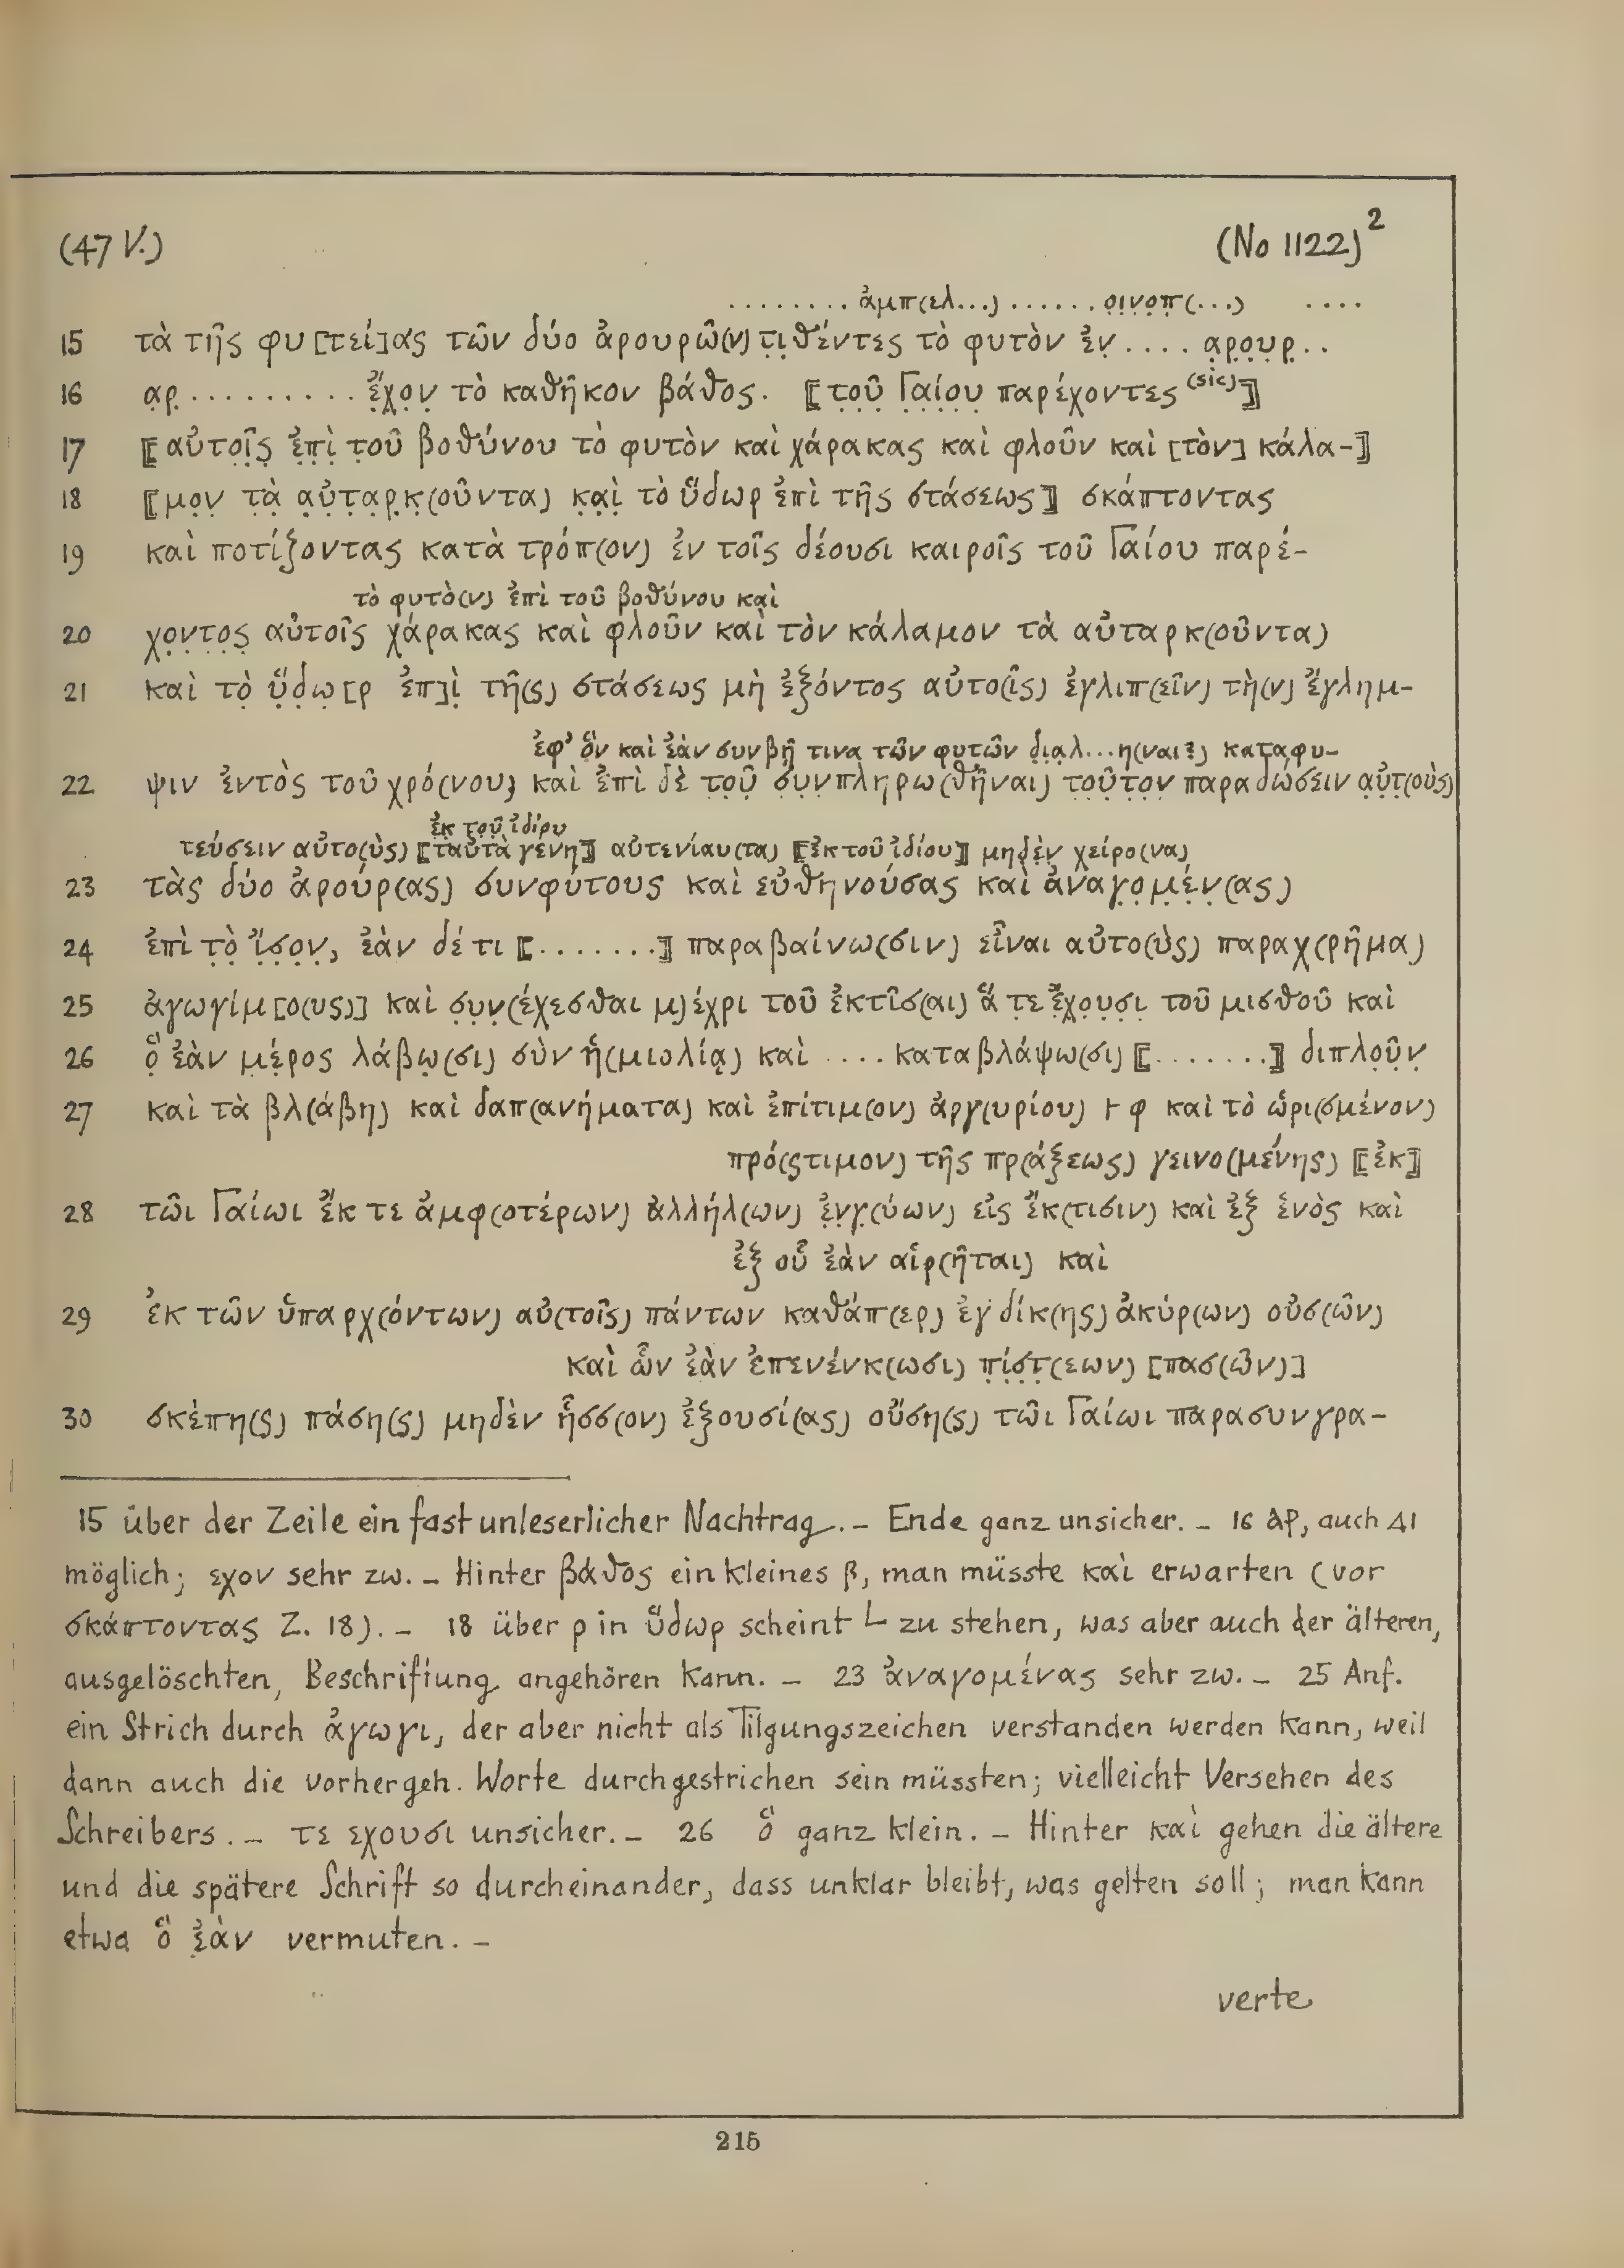 (47 V.) (No 1122)²
........ ἀμπ(ελ...) ...... ο̣ἰν̣ο̣π̣(...) ....
15 τὰ τῆς φυ[τεί]ας τῶν δύο ἀρουρῶ(ν) τ̣ι̣θέντες τὸ φυτὸν ἐν̣ .... α̣ρ̣ο̣υ̣ρ̣..
16 α̣ρ̣ .......... ἔ̣χ̣ο̣ν̣ τὸ καθῆκον βάθος. ⟦τ̣ο̣ῦ̣ Γ̣α̣ί̣ο̣υ̣ παρέχοντες (sic)⟧
17 ⟦αὐτο̣ῖ̣ς̣ ἐ̣π̣ὶ̣ τ̣οῦ βοθύνου τὸ φυτὸν καὶ χάρακας καὶ φλοῦν καὶ [τὸν] κάλα-⟧
18 ⟦μο̣ν̣ τ̣ὰ̣ α̣ὐ̣τ̣α̣ρ̣κ̣(οῦντα) κ̣α̣ὶ̣ τὸ ὕδωρ ἐπὶ τῆς στάσεως⟧ σκάπτοντας
19 καὶ ποτίζοντας κατὰ τρόπ(ον) ἐν τοῖς δέουσι καιροῖς τοῦ Γαίου παρέ-
τὸ φυτὸ(ν) ἐπὶ τοῦ βοθύνου καὶ
20 χο̣ν̣τ̣ο̣ς̣ αὐτοῖς χάρακας καὶ φλοῦν καὶ τὸν κάλαμον τὰ αὐταρκ(οῦντα)
21 καὶ τὸ̣ ὕ̣δ̣ω̣[ρ ἐπ]ὶ̣ τῆ(ς) στάσεως μὴ ἐξόντος αὐτο(ῖς) ἐγλιπ(εῖν) τὴ(ν) ἔγλημ-
ἐφ' ὃν καὶ ἐὰν συνβῇ τινα τῶν φυτῶν δ̣ι̣α̣λ...η(ναι?) καταφυ-
22 ψιν ἐντὸς τοῦ χρό(νου) καὶ ἐπὶ δὲ τ̣ο̣ῦ̣ σ̣υ̣ν̣πληρω(θῆναι) τ̣ο̣ῦ̣τ̣ο̣ν̣ παραδώσειν α̣ὐ̣τ̣(οὺς)
ἐκ τοῦ ἰδίου
τεύσειν αὐτο(ὺς) ⟦ταὐτὰ γένη⟧ αὐτενίαυ(τα) ⟦ἐκ τοῦ ἰδίου⟧ μηδὲν χείρο(να)
23 τὰς δύο ἀρούρ(ας) συνφύτους καὶ εὐθηνούσας καὶ ἀναγ̣ο̣μ̣έ̣ν̣(ας)
24 ἐπὶ τ̣ὸ̣ ἴ̣σ̣ο̣ν̣, ἐὰν δέ τι ⟦.......⟧ παραβαίνω(σιν) εἶναι αὐτο(ὺς) παραχ(ρῆμα)
25 ἀγωγίμ[ο(υς)] καὶ σ̣υ̣ν̣(έχεσθαι μ)έχρι τοῦ ἐκτῖσ(αι) ἅ τ̣ε ἔ̣χ̣ο̣υ̣σ̣ι̣ τοῦ μισθοῦ καὶ
26 ὃ̣ ἐὰν μ̣έ̣ρος λάβω̣(σι) σὺν ἡ(μιολίᾳ) καὶ .... καταβλάψω(σι) ⟦.......⟧ διπλο̣ῦ̣ν̣
27 καὶ τὰ βλ(άβη) καὶ δαπ(ανήματα) καὶ ἐπίτιμ(ον) ἀργ(υρίου) ⊢ φ καὶ τὸ ὡρι(σμένον)
πρό(ςτιμον) τῆς πρ(άξεως) γεινο(μένης) ⟦ἐκ⟧
28 τῶι Γαίωι ἔκ τε ἀμφ(οτέρων) ἀλλήλ(ων) ἐ̣ν̣γ̣(ύων) εἰς ἔκ(τισιν) καὶ ἐξ ἑνὸς καὶ
ἐξ οὗ ἐὰν αἱρ(ῆται) καὶ
29 ἐκ τῶν ὑπαρχ(όντων) αὐ(τοῖς) πάντων καθάπ(ερ) ἐγ δίκ(ης) ἀκύρ(ων) οὐσ(ῶν)
καὶ ὧν ἐὰν ἐπενένκ(ωσι) π̣ί̣σ̣τ̣(εων) [πασ(ῶν)]
30 σκέπη(ς) πάση(ς) μηδὲν ἧσσ(ον) ἐξουσί(ας) οὔση(ς) τῶι Γαίωι παρασυνγρα-
15 über der Zeile ein fast unleserlicher Nachtrag. – Ende ganz unsicher. – 16 αρ, auch Δι
möglich; εχον sehr zw. – Hinter βάθος ein kleines β, man müsste καὶ erwarten (vor
σκάπτοντας Z. 18). – 18 über ρ in ὕδωρ scheint L zu stehen, was aber auch der älteren,
ausgelöschten, Beschriftung angehören kann. – 23 ἀναγομένας sehr zw. – 25 Anf.
ein Strich durch ἀγωγι, der aber nicht als Tilgungszeichen verstanden werden kann, weil
dann auch die vorhergeh. Worte durchgestrichen sein müssten; vielleicht Versehen des
Schreibers. – τε εχουσι unsicher. – 26 ὃ ganz klein. – Hinter καὶ gehen die ältere
und die spätere Schrift so durcheinander, dass unklar bleibt, was gelten soll; man kann
etwa ὃ ἐ̣ὰν vermuten. –
verte
215